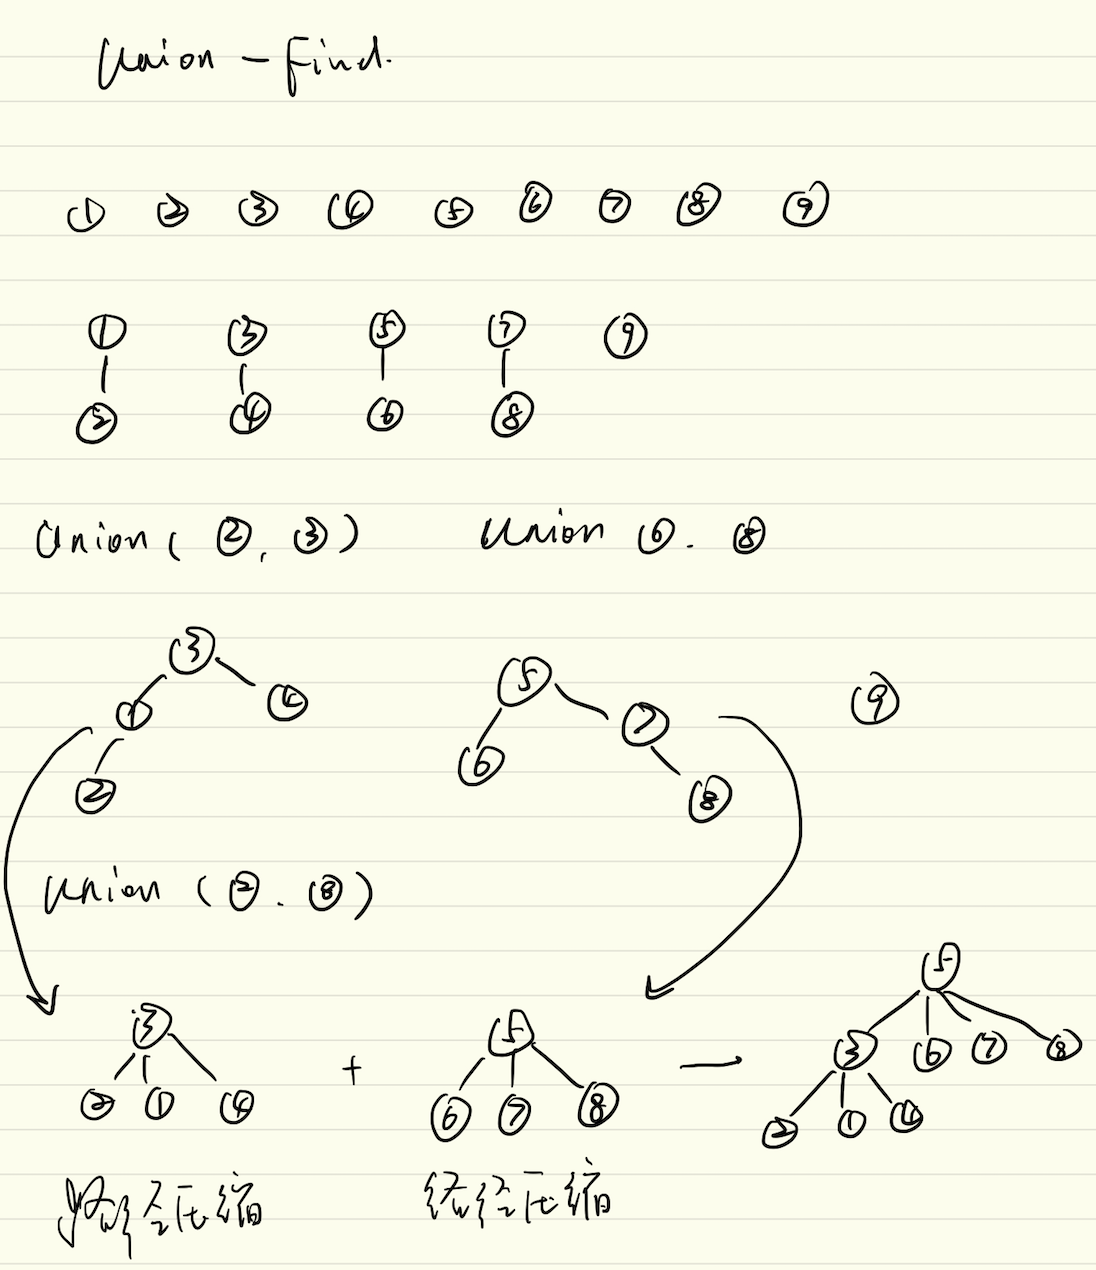 Union - Find.
① ② ③ ④ ⑤ ⑥ ⑦ ⑧ ⑨
① ③ ⑤ ⑦ ⑨
② ④ ⑥ ⑧
Union ( ②, ③ ) Union ⑥. ⑧
③ ⑤ ⑨
① ④ ⑦
② ⑥ ⑧
Union ( ②. ⑧ )
⑤
③ + ⑤ — ③ ⑥ ⑦ ⑧
② ① ④ ⑥ ⑦ ⑧ ② ① ④
径压缩 径压缩